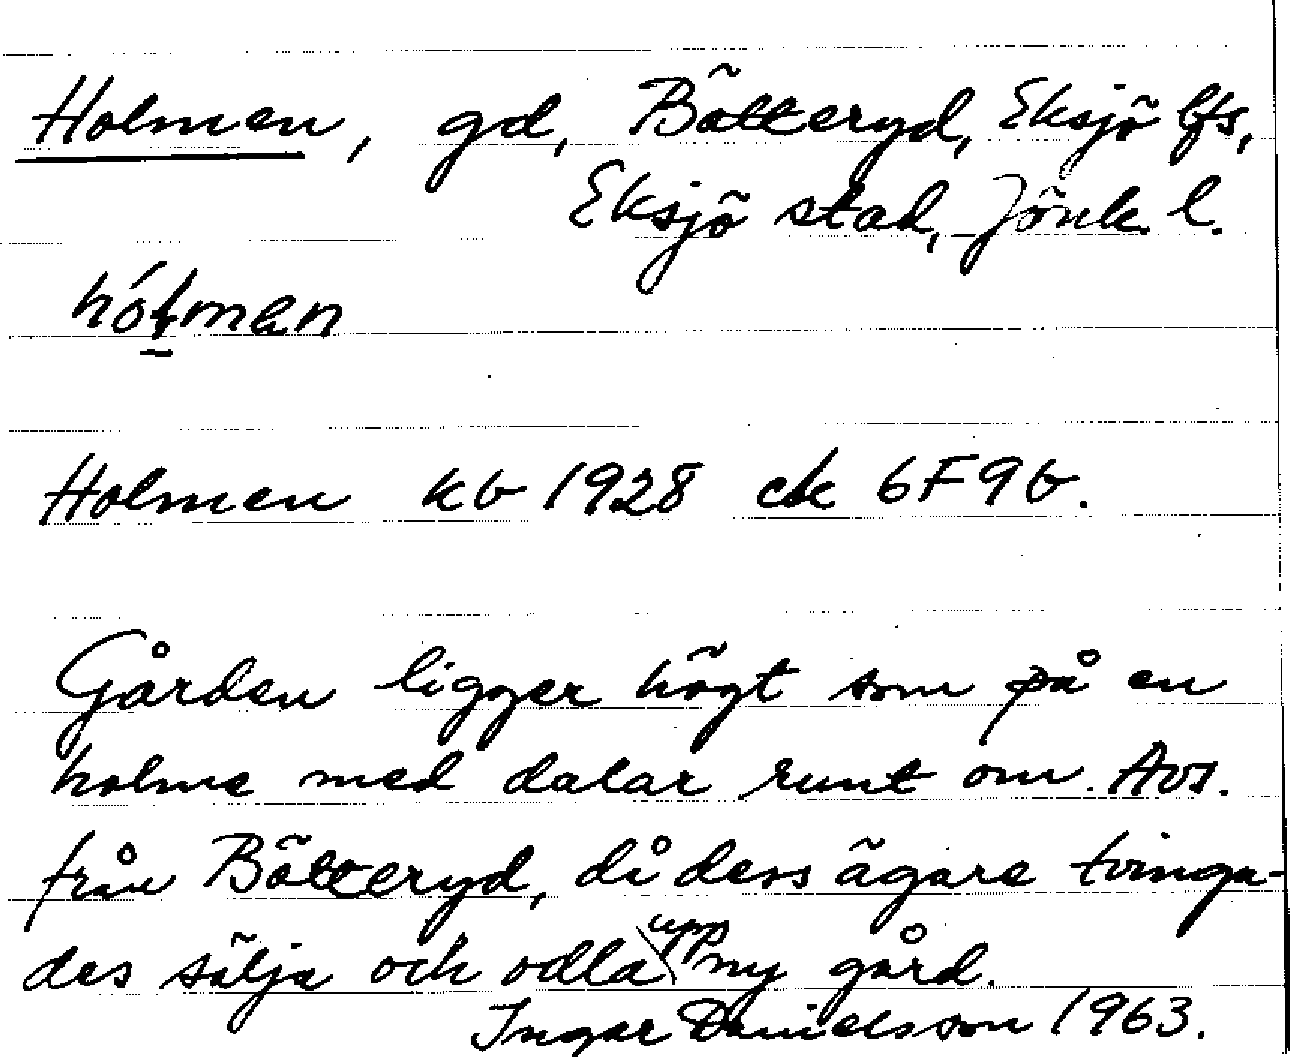 Holmen, gd, Bätteryd, Eksjö lfs,
Eksjö stad, Jönk. l.
hólmen
Holmen kb 1928 ek 6F9b.
Gården ligger högt som på en
holme med dalar runt om. Avs.
från Bätteryd, då dess ägare tvinga-
des sälja och odla upp ny gård.
Ingar Danielsson 1963.